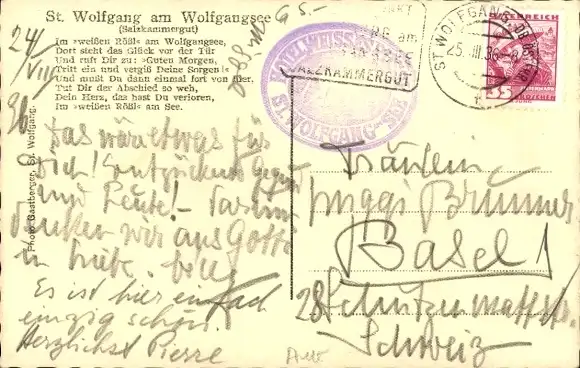 St. Wolfgang am Wolfgangsee
(Salzkammergut)
Im »weißen Rößl« am Wolfgangsee,
Dort steht das Glück vor der Tür
Und ruft Dir zu: »Guten Morgen,
Tritt ein und vergiß Deine Sorgen!«
Und mußt Du dann einmal fort von hier,
Tut Dir der Abschied so weh,
Dein Herz, das hast Du verloren,
Im »weißen Rößl« am See.
24/
VIII
36
Photo Gastberger, St. Wolfgang.
Das wär etwas für
Dich! Entzückend Gegend
und Leute! –
denken wir aus
in Liebe.
Es ist hier einfach
einzig schön.
Herzlichst Pierre
G S.-
am
SEE
SALZKAMMERGUT
HOTEL WEISSES
ST. WOLFGANG-SEE
ST. WOLFGANG
25. III. 36
35
GROSCHEN
Fräulein
Brunner
Basel 1
28 Schützenmattstr.
Schweiz